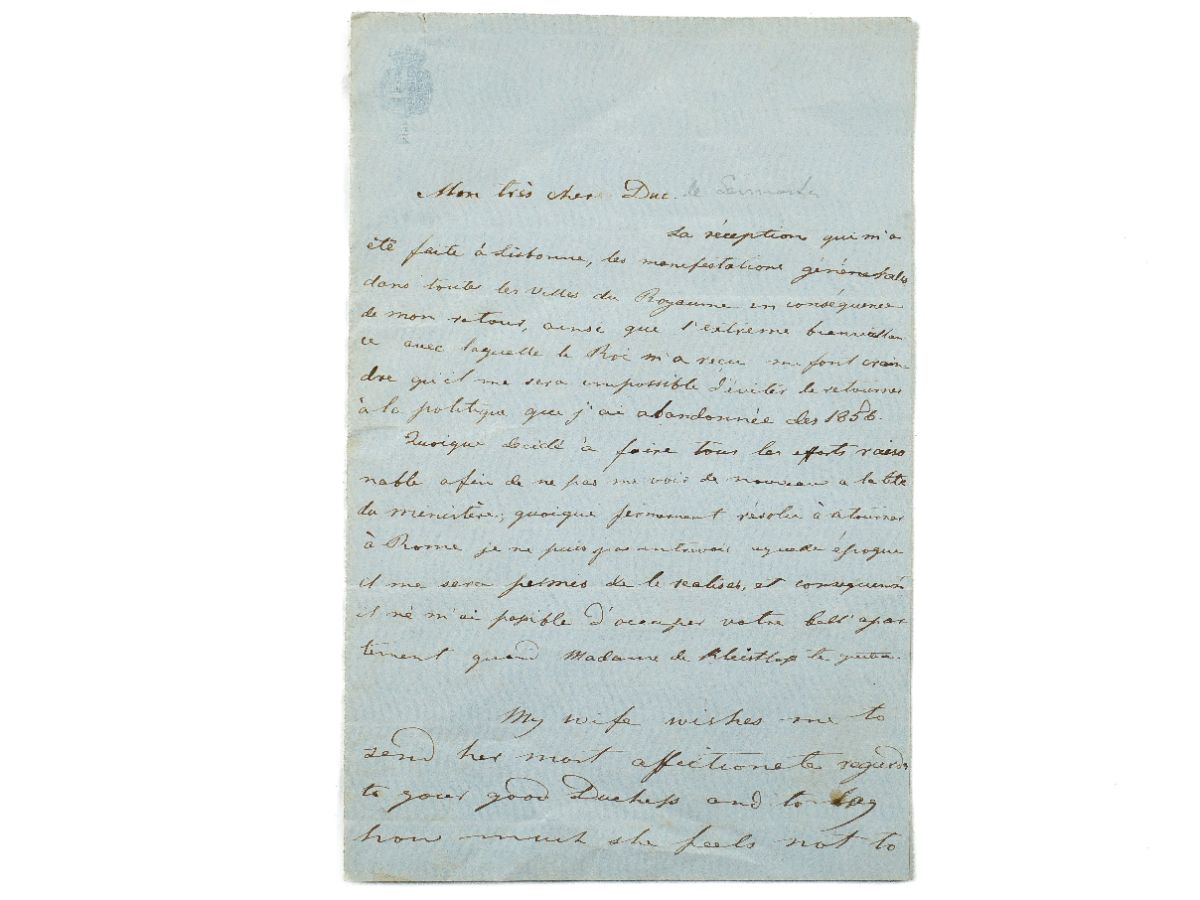 Mon très cher Duc. le
La réception qui m'a
été faite à Lisbonne, les manifestations générales
dans toutes les villes du Royaume en conséquence
de mon retour, ainsi que l'extreme bienveillan
ce avec laquelle le Roi m'a reçu me font crain
dre qu'il me sera impossible d'éviter de retourner
à la politique que j'ai abandonnée dès 1856.
Quoique décidé à faire tous les efforts raiso
nable afin de ne pas me voir de nouveau a la tête
du ministère; quoique fermement résolu à
à Rome je ne puis pas époque
il me sera permis de le realiser, et
il ne m'ai possible d'occuper votre bell'apar
tement quand Madame de
My wife wishes me to
send her most affectionete regards
to your good Duchess and to say
how much she feels not to